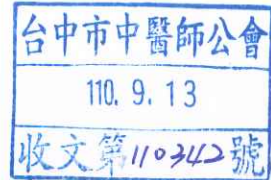 台中市中醫師公會
110. 9. 13
收文第110342號